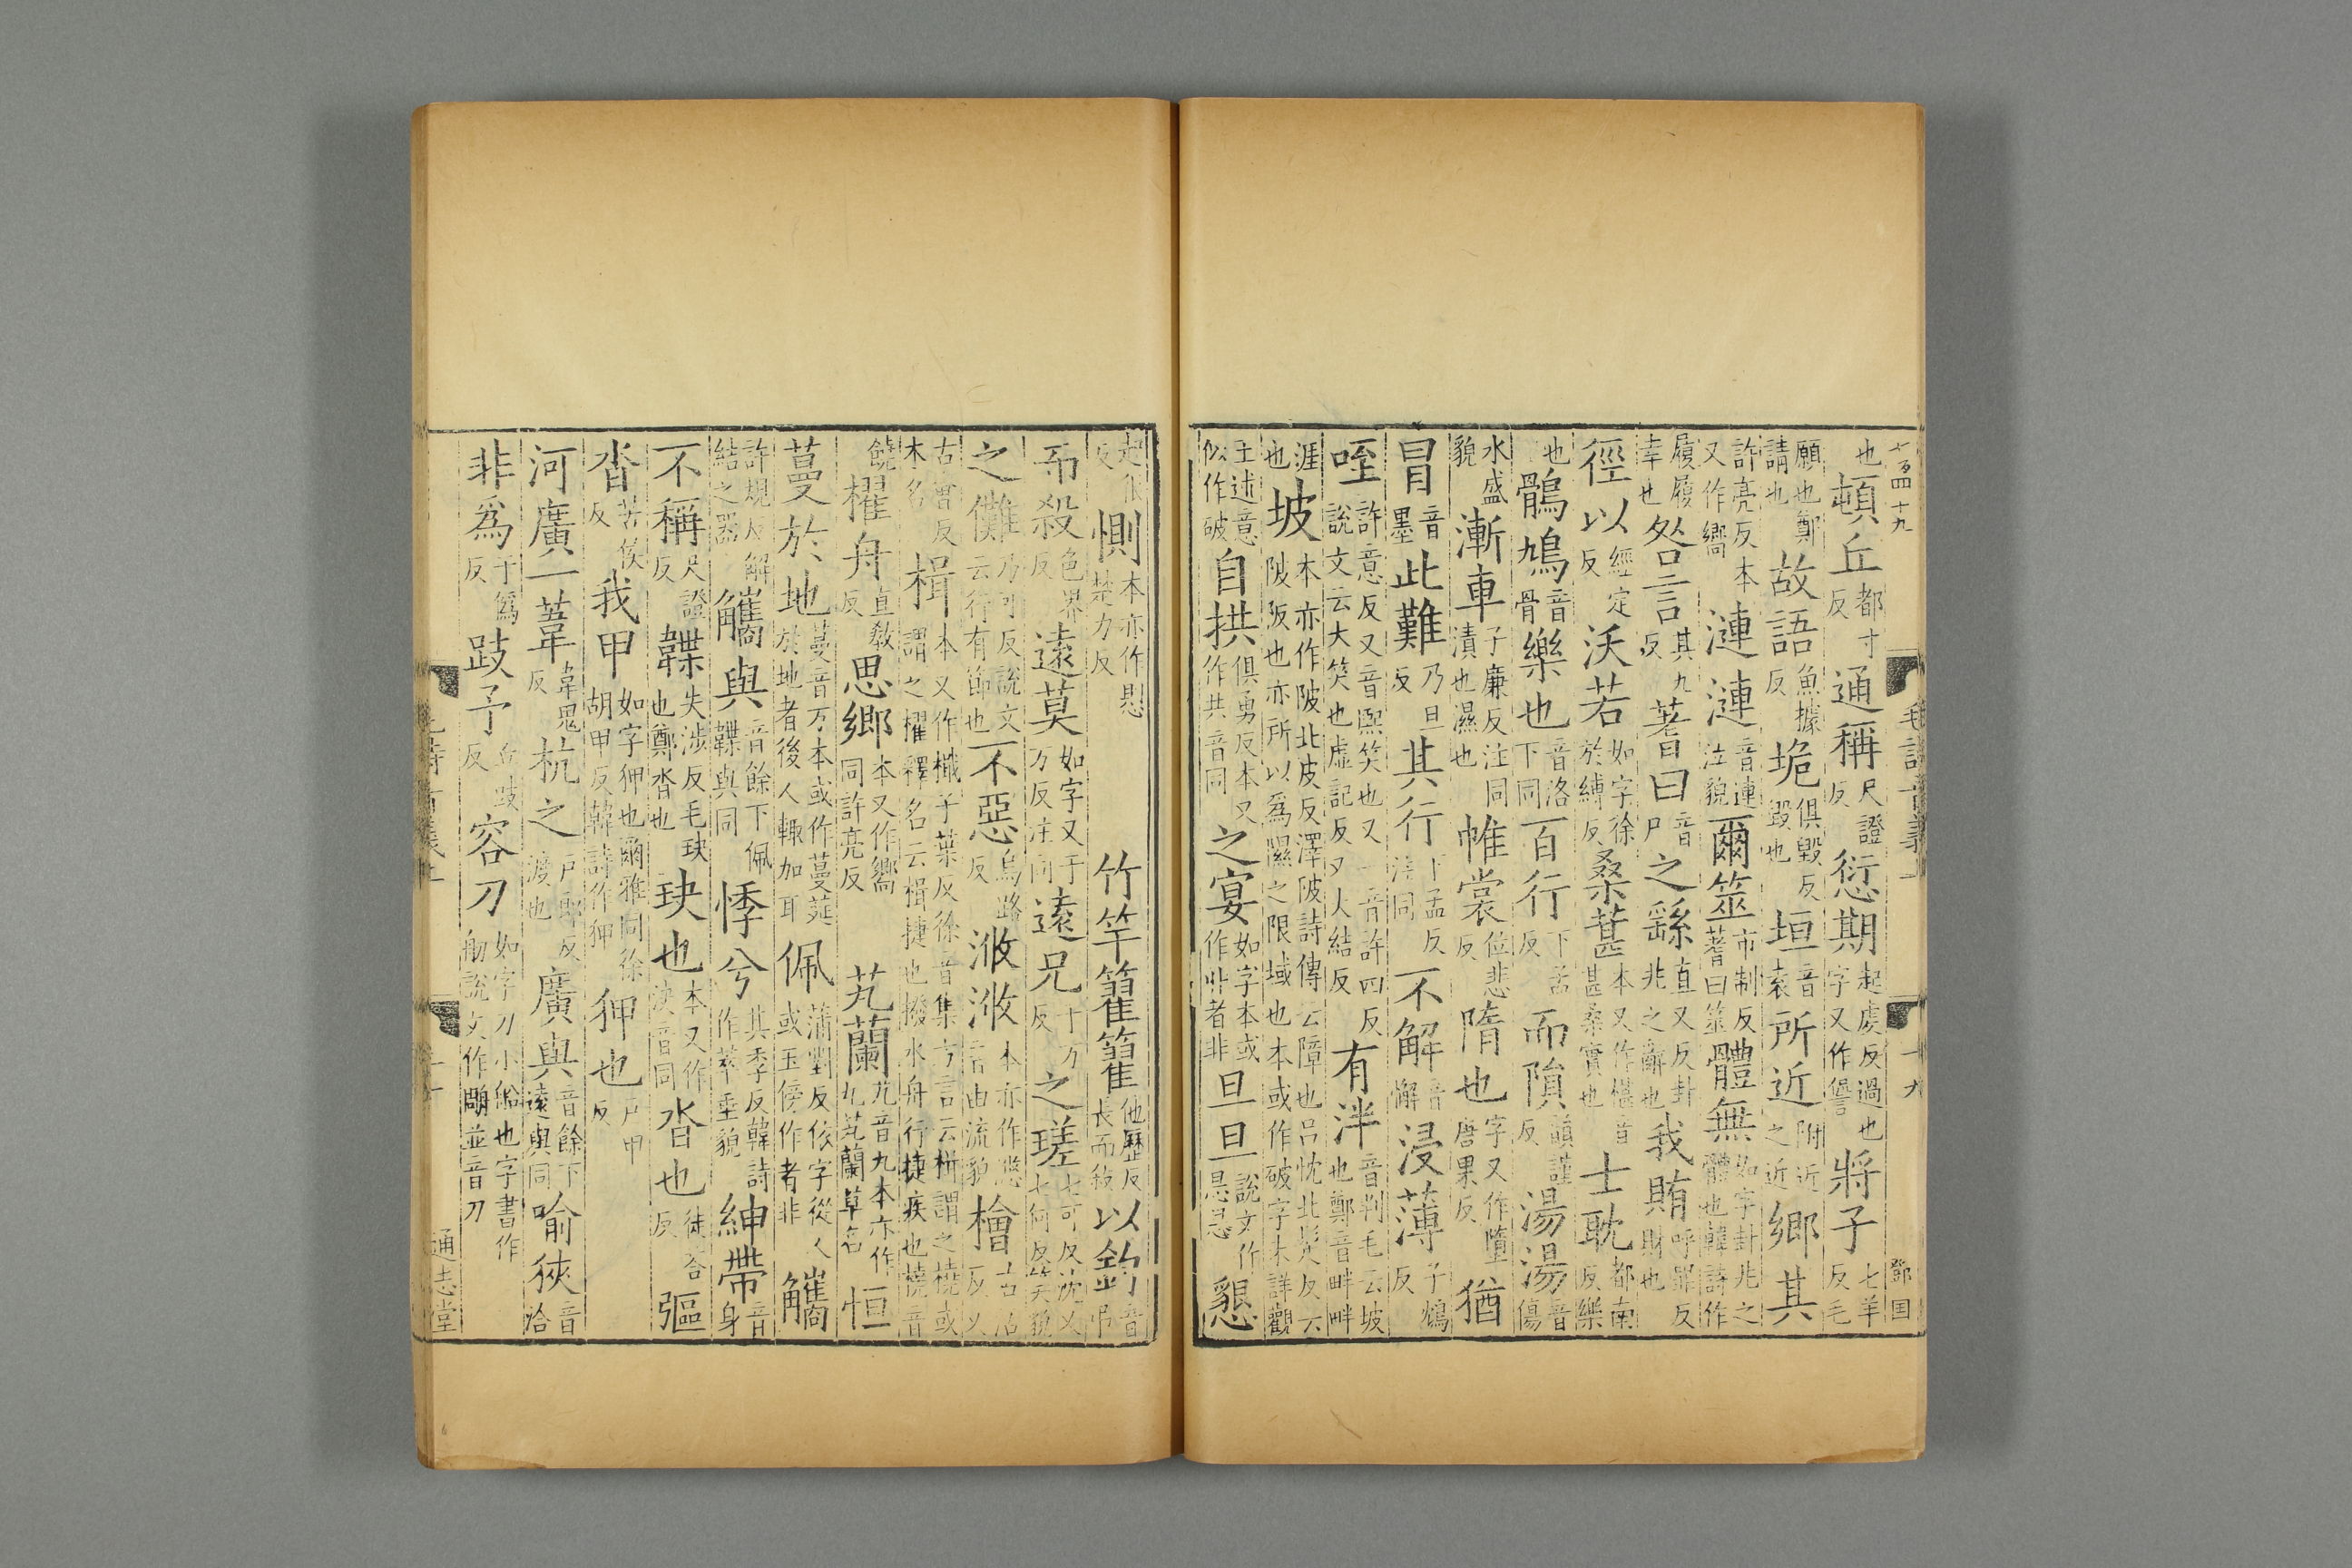 七百四十九 毛詩音義上 十九 鄧国
也頓丘都寸反通稱尺證反愆期起虔反過也字又作諐將子七羊反毛
願也鄭請也故語魚據反垝俱毀反毀也垣音袁所近附近之近鄉其
許亮反本又作嚮漣漣音連泣貌爾筮市制反蓍曰筮體無如字卦兆之體也韓詩作
履履幸也咎言其九反蓍曰音尸之繇直又反卦兆之辭也我賄呼罪反財也
徑以經定反沃若如字徐於縛反桑葚本又作椹音甚桑實也士耽都南反樂
也鶻鳩音骨樂也音洛下同百行下孟反而隕韻謹反湯湯音傷
水盛貌漸車子廉反注同漬也濕也帷裳位悲反隋也字又作墮唐果反猶
冒音墨此難乃旦反其行下孟反注同不解音懈浸薄子鴆反
咥許意反又音熙笑也又一音許四反說文云大笑也虛記反又大結反有泮音判毛云坡也鄭音畔畔
涯也坡本亦作陂北皮反澤陂詩傳云障也呂忱北髲反云陂阪也亦所以為隰之限域也本或作破字未詳觀
王述意似作破自拱俱勇反本又作共音同之宴如字本或作丱者非旦旦說文作悬悬懇
起很反惻本亦作恻楚力反竹竿籊籊他歷反長而殺以釣音吊
而殺色界反遠莫如字又于万反注同遠兄于万反之瑳七可反沈又七何反笑貌
之儺乃可反說文云行有節也不惡烏路反浟浟本亦作悠音由流貌檜古活反又
古會反木名楫本又作檝子葉反徐音集方言云楫謂之橈或謂之櫂釋名云楫捷也撥水舟行捷疾也橈音
饒櫂舟直教反思鄉本又作嚮同許亮反芄蘭芄音九本亦作丸芄蘭草名恒
蔓於地蔓音万本或作蔓莚於地者後人輒加耳佩蒲對反依字從人或玉傍作者非觿
許規反解結之器觿與音餘下佩韘與同悸兮其季反韓詩作萃垂貌紳帶音身
不稱尺證反韘失涉反毛玦也鄭沓也玦也本又作決音同沓也徒荅反彄
沓苦侯反我甲如字狎也爾雅同徐胡甲反韓詩作狎狎也戶甲反
河廣一葦韋鬼反杭之戶郎反渡也廣與音餘下遠與同喻狹音洽
非為于偽反跂予丘豉反容刀如字刀小船也字書作舠說文作𦩍並音刀
毛詩音義上 二十 通志堂